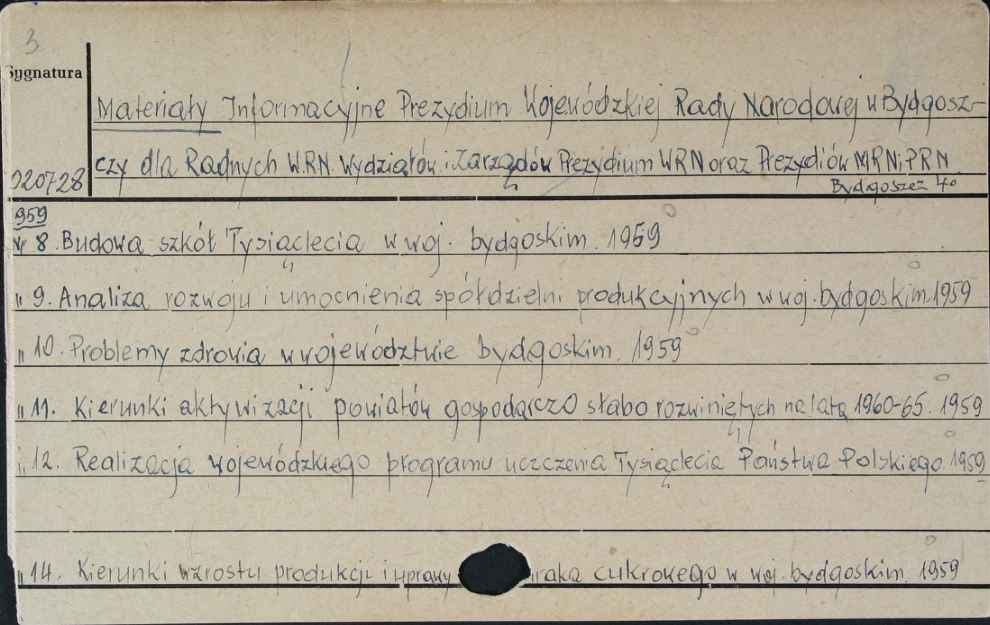 3
Sygnatura
Materiały Informacyjne Prezydium Wojewódzkiej Rady Narodowej w Bydgosz-
czy dla Radnych W.R.N. Wydziałów i Zarządów Prezydium WRN oraz Prezydiów MRN i PRN
020728
Bydgoszcz 4º
959
Nr 8. Budowa szkół Tysiąclecia w woj. bydgoskim. 1959
" 9. Analiza rozwoju i umocnienia spółdzielni produkcyjnych w woj. bydgoskim 1959
" 10. Problemy zdrowia w województwie bydgoskim. 1959
" 11. Kierunki aktywizacji powiatów gospodarczo słabo rozwiniętych na lata 1960-65. 1959
" 12. Realizacja wojewódzkiego programu uczczenia Tysiąclecia Państwa Polskiego. 1959
" 14. Kierunki wzrostu produkcji i uprawy raka cukrowego w woj. bydgoskim. 1959